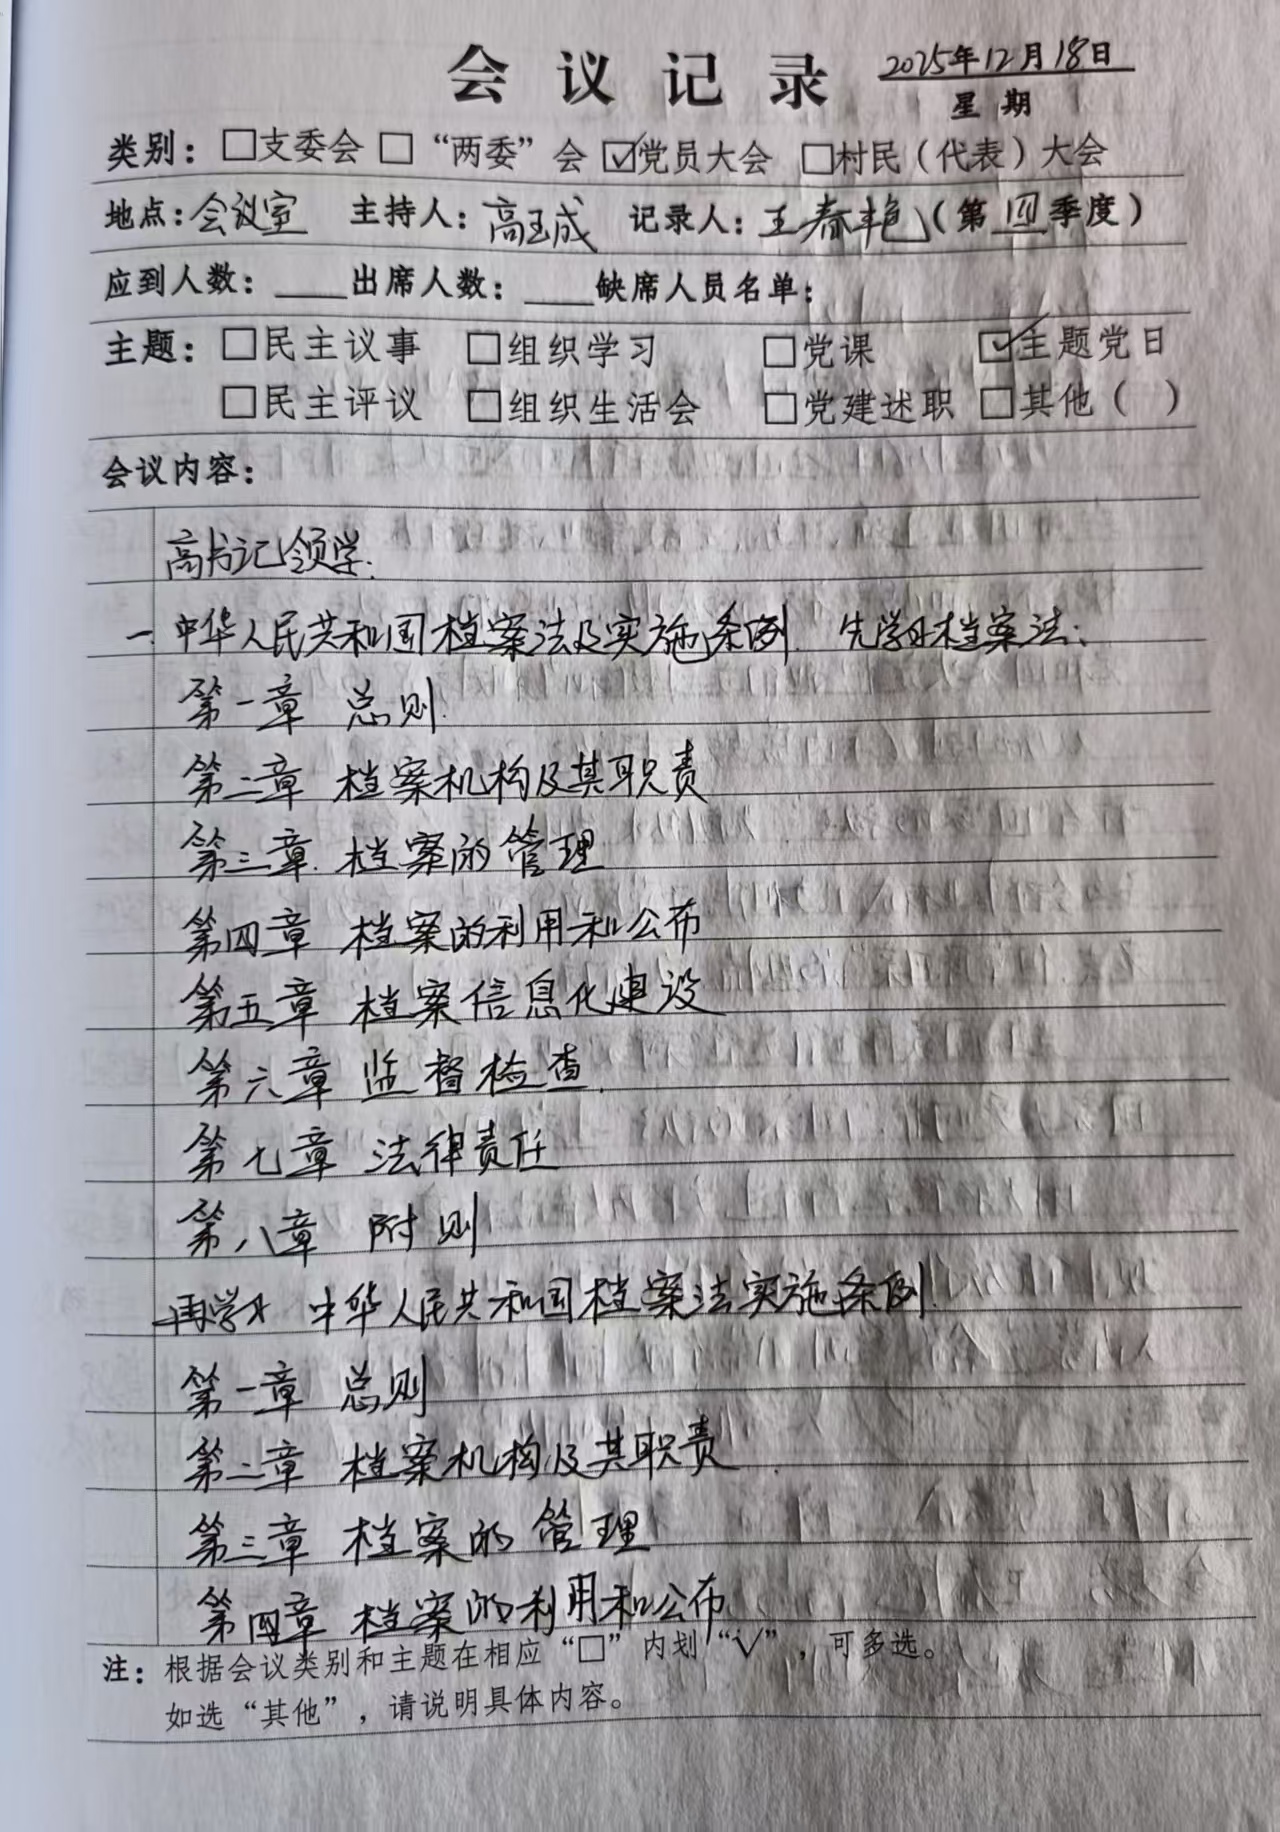 会议记录 2025年12月18日
星期
类别：□支委会 □“两委”会 ☑党员大会 □村民（代表）大会
地点：会议室 主持人：高玉成 记录人：王春艳（第四季度）
应到人数：____出席人数：____缺席人员名单：
主题：□民主议事 □组织学习 □党课 ☑主题党日
□民主评议 □组织生活会 □党建述职 □其他（ ）
会议内容：
高书记领学.
一.中华人民共和国档案法及实施条例. 先学习档案法：
第一章 总则.
第二章 档案机构及其职责
第三章. 档案的管理
第四章 档案的利用和公布
第五章 档案信息化建设
第六章 监督检查.
第七章 法律责任
第八章 附则
再学习 中华人民共和国档案法实施条例.
第一章 总则
第二章 档案机构及其职责
第三章 档案的管理
第四章 档案的利用和公布
注：根据会议类别和主题在相应“□”内划“√”，可多选。
如选“其他”，请说明具体内容。